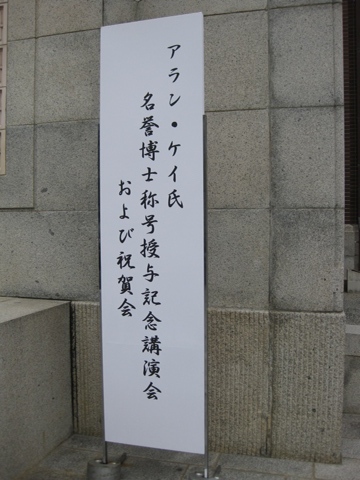 アラン・ケイ氏
名誉博士称号授与記念講演会
および祝賀会